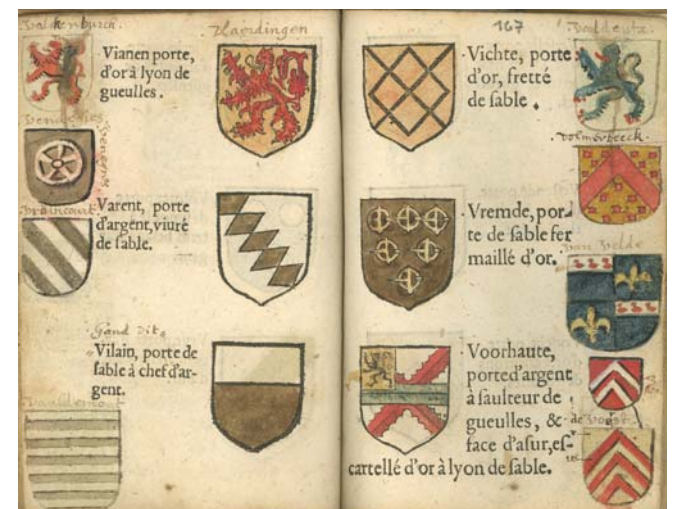 Valkenburch.
Haerdingen
Vianen porte,
d'or à lyon de
gueulles.
Varent, porte
d'argent, viuré
de sable.
Gand dit
Vilain, porte de
sable à chef d'ar-
gent.
Vauldemont
167
Vichte, porte
d'or, fretté
de sable.
Vremde, por-
te de sable fer
maillé d'or.
van Velde
Voorhaute,
porte d'argent
à saulteur de
gueulles, &
face d'asur, es-
cartellé d'or à lyon de sable.